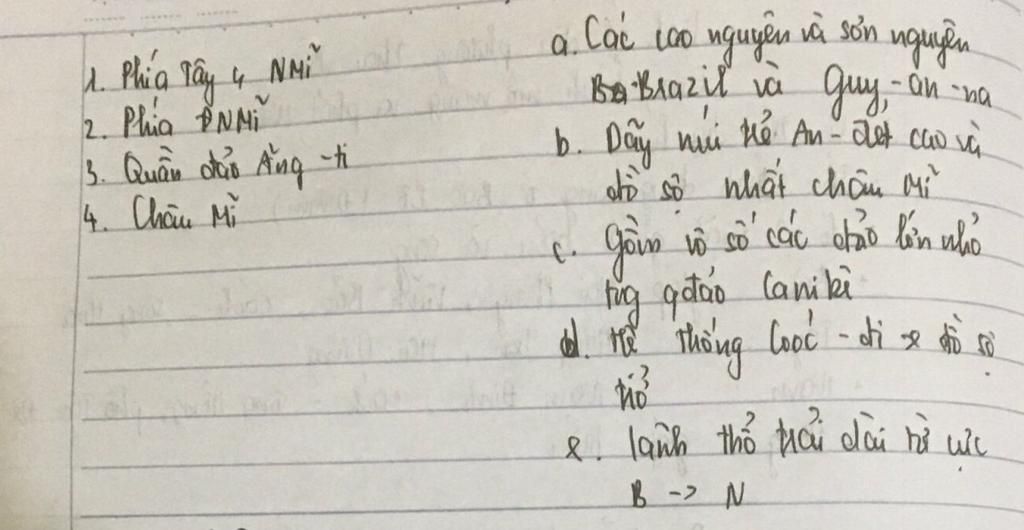 1. Phía Tây ở NMĩ
2. Phía ĐNMĩ
3. Quần đảo Ăng-ti
4. Châu Mĩ
a. Các cao nguyên và sơn nguyên
Brazil và Guy-an-na
b. Dãy núi trẻ An-det cao và
đồ sộ nhất châu Mĩ
c. Gồm vô số các đảo lớn nhỏ
trg qđảo Caribê
d. Hệ thống Cooc-di-e đồ sộ
e. lãnh thổ trải dài từ cực
B -> N